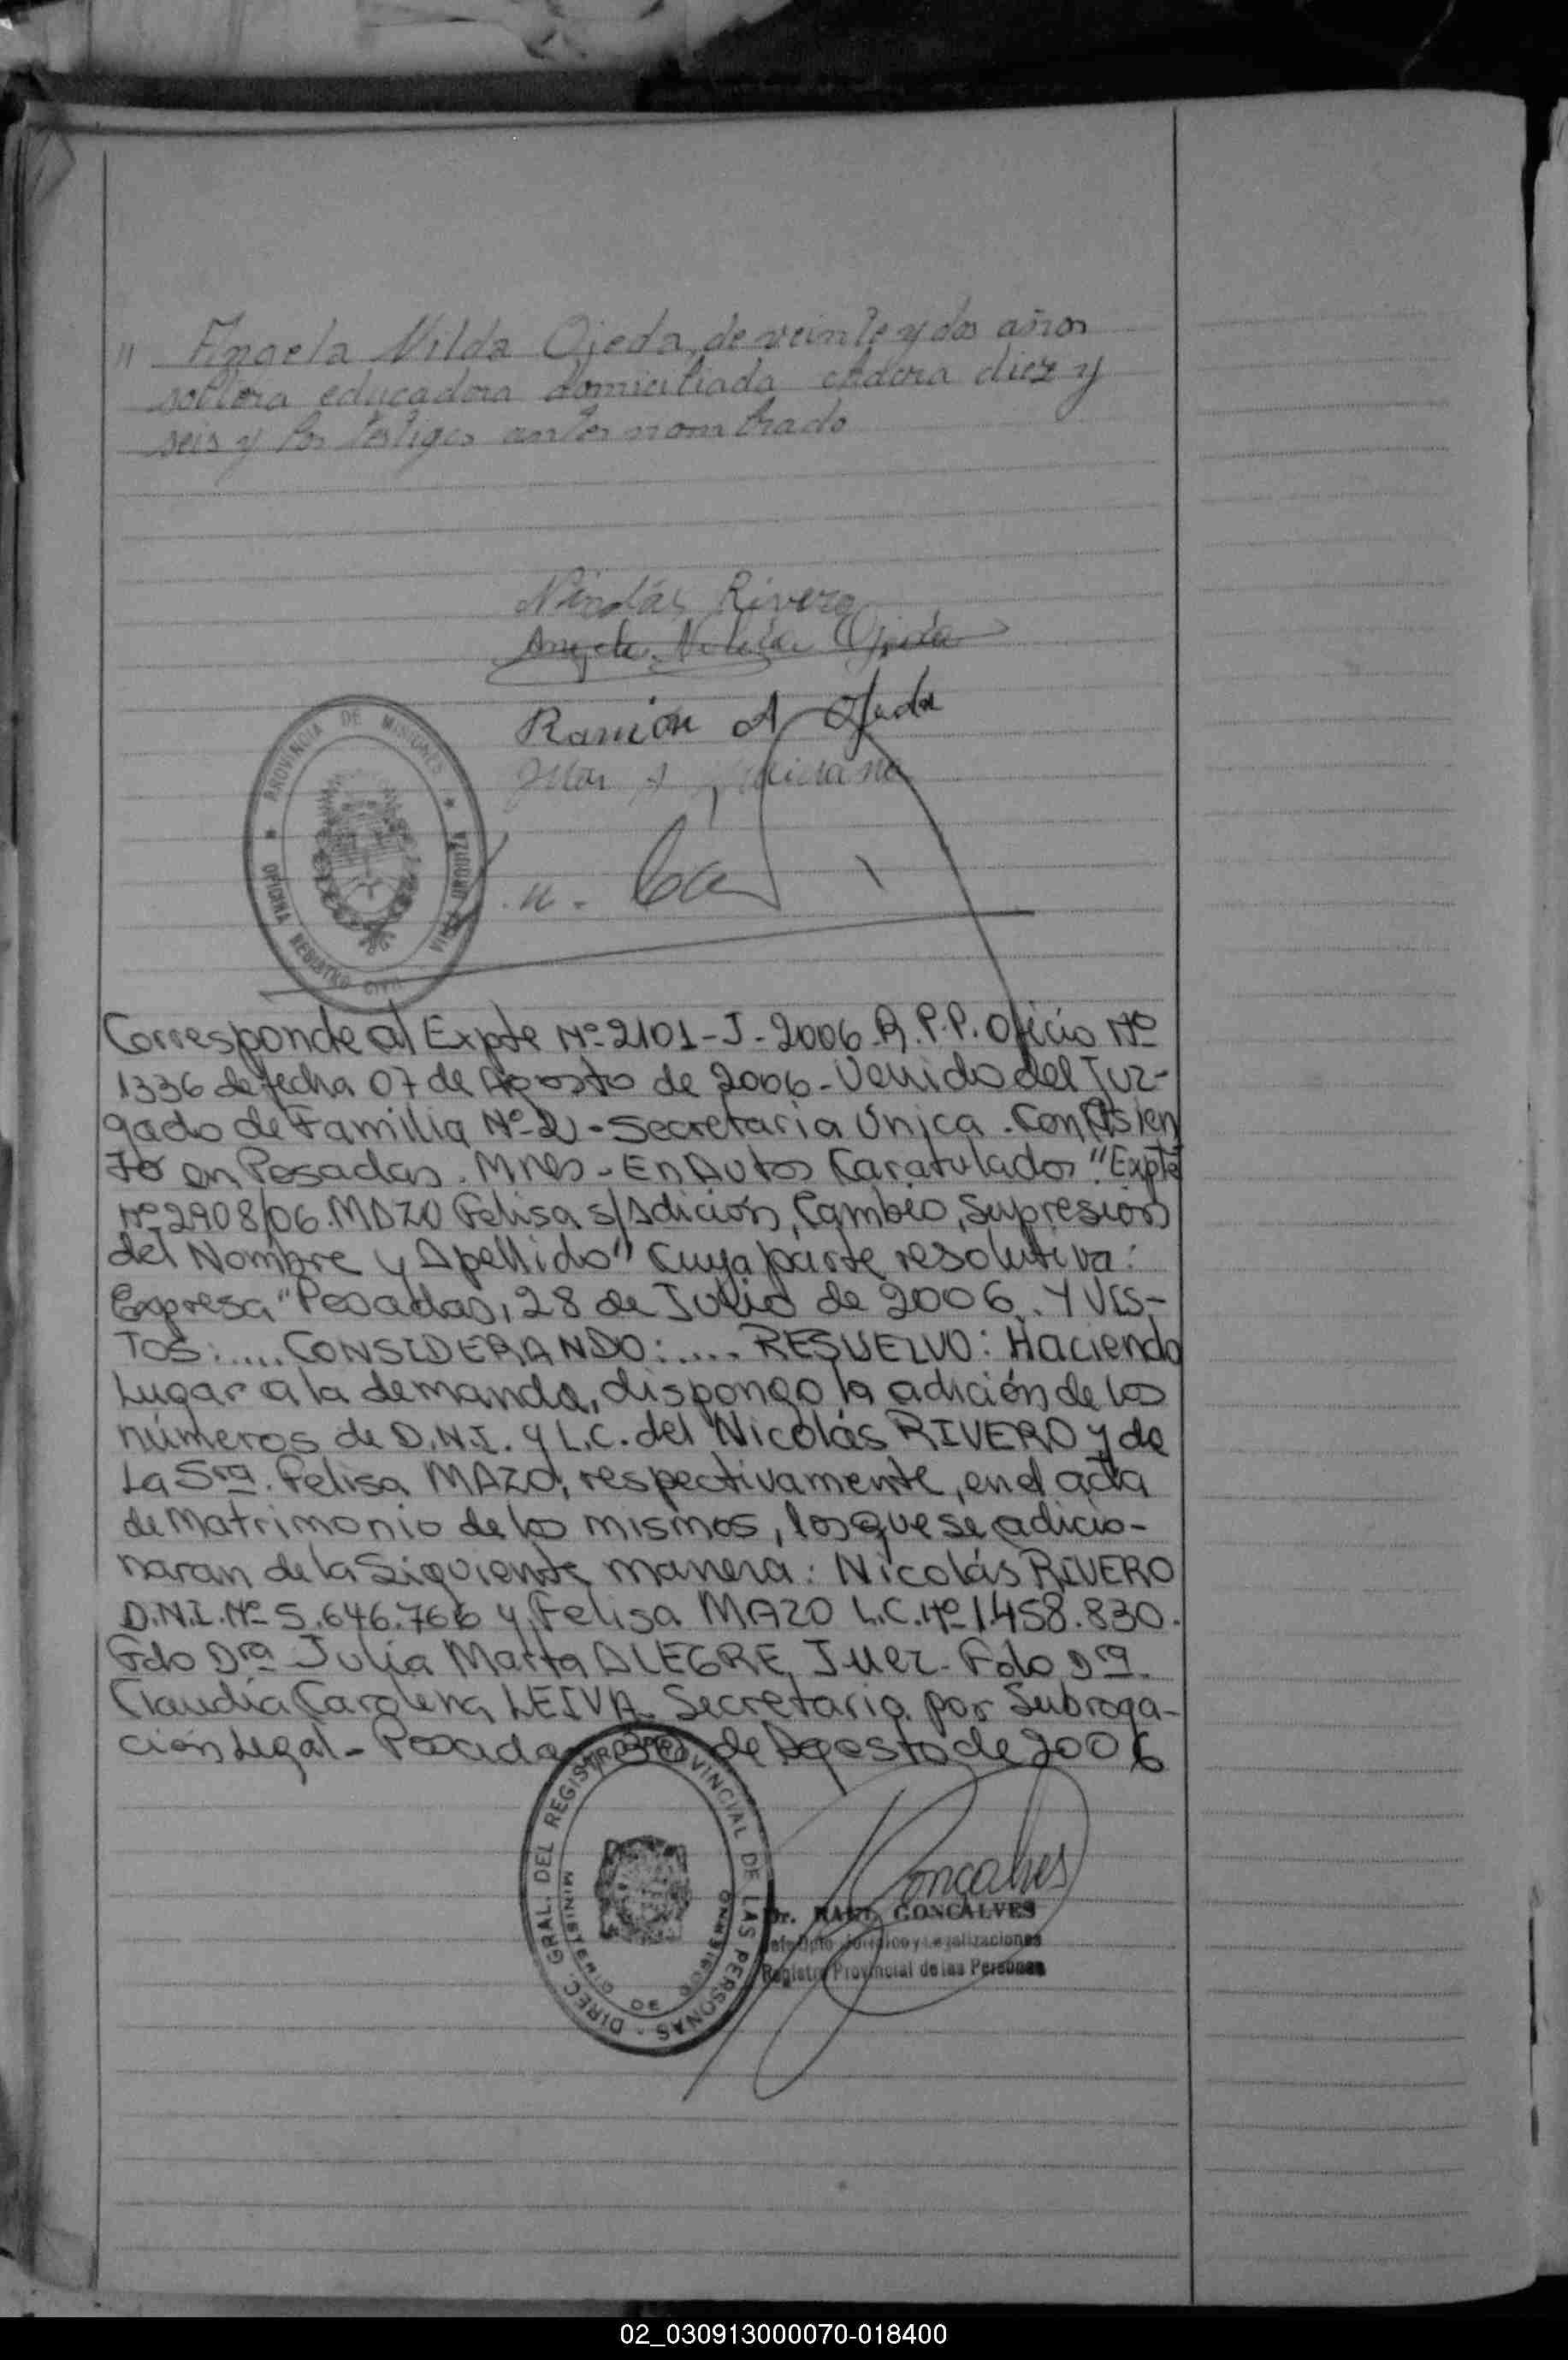 " Angela Nilda Ojeda, de veinte y dos años
soltera educadora domiciliada chacra diez y
seis y los testigos antes nombrado
Nicolás Rivero
Angela Ojeda
Ramón A Ojeda
PROVINCIA DE MISIONES
OFICINA REGISTRO CIVIL
Corresponde al Expte Nº 2101-J-2006-R.P.P. Oficio Nº
1336 de fecha 07 de Agosto de 2006-Venido del Juz-
gado de Familia Nº 2-Secretaria Única. Con Asien
to en Posadas. Mnes-En Autos Caratulados "Expte
Nº 2908/06. MAZO Felisa s/Adición, Cambio, Supresión
del Nombre y Apellido" Cuya parte resolutiva:
Expresa "Posadas, 28 de Julio de 2006. Y VIS-
TOS:.... CONSIDERANDO:.... RESUELVO: Haciendo
Lugar a la demanda, dispongo la adición de los
números de D.N.I. y L.C. del Nicolás RIVERO y de
La Sra. Felisa MAZO, respectivamente, en el acta
de Matrimonio de los mismos, los que se adicio-
naran de la Siguiente manera: Nicolás RIVERO
D.N.I. Nº 5.646.766 y Felisa MAZO L.C. Nº 1.458.830.
Fdo Dra Julia Marta ALEGRE Juez-Fdo Dra.
Claudia Carolena LEIVA-Secretaria por Subroga-
ción Legal-Posadas 30 de Agosto de 2006
DIREC. GRAL. DEL REGISTRO PROVINCIAL DE LAS PERSONAS -
MINISTERIO DE GOBIERNO
Goncalves
Dr. RAUL GONCALVES
Jefe Dpto. Jurídico y Legalizaciones
Registro Provincial de las Personas
02_030913000070-018400